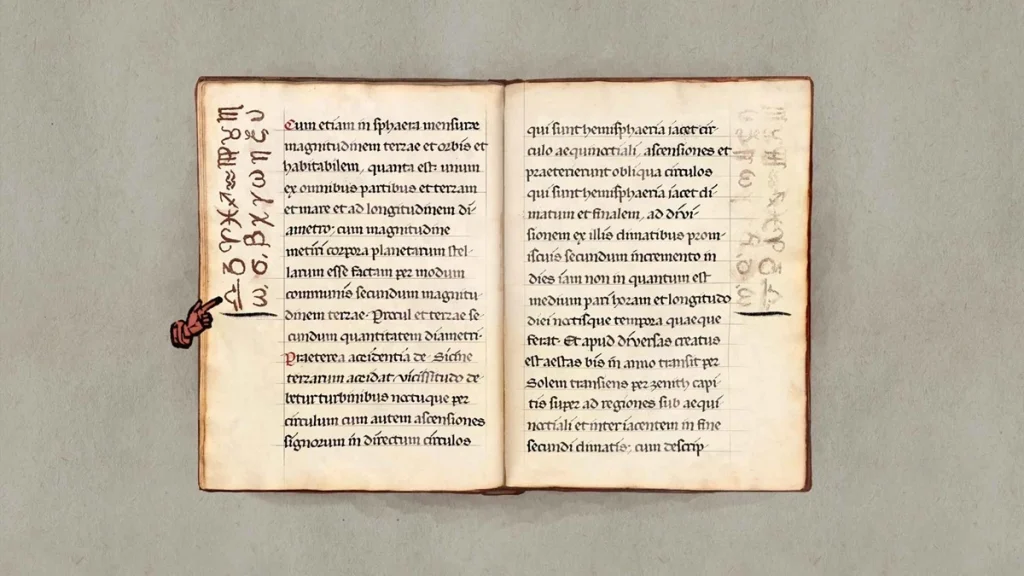 Cum etiam in sphaera mensurae
magnitudinem terrae et orbis et
habitabilem, quanta est unum
ex omnibus partibus et terram
et mare et ad longitudinem di-
ametro; cum magnitudine
metiri corpora planetarum stel-
larum esse factam per modum
communis secundum magnitu-
dinem terrae. Procul et terrae se-
cundum quantitatem diametri.
Praeterea accidentia de. Sicine
terrarum accidat, vicissitudo de-
betur turbinibus noctuque per
circulum cum autem ascensiones
signorum in directum circulos
qui sunt hemisphaeria iacet cir-
culo aequinoctiali, ascensiones et
praeterierunt obliqua circulos
qui sunt hemisphaeria iacet cli-
matum et finalem, ad divi-
sionem ex illis climatibus prom-
iscuis secundum incremento in
dies iam non in quantum est
medium pari horam et longitudo
diei noctisque tempora quaeque
ferat. Et apud diversas creatus
est aestas bis in anno transit per
Solem transiens per zenith capi-
tis super ad regiones sub aequi-
noctiali et inter iacentem in fine
secundi climatis; cum descrip-